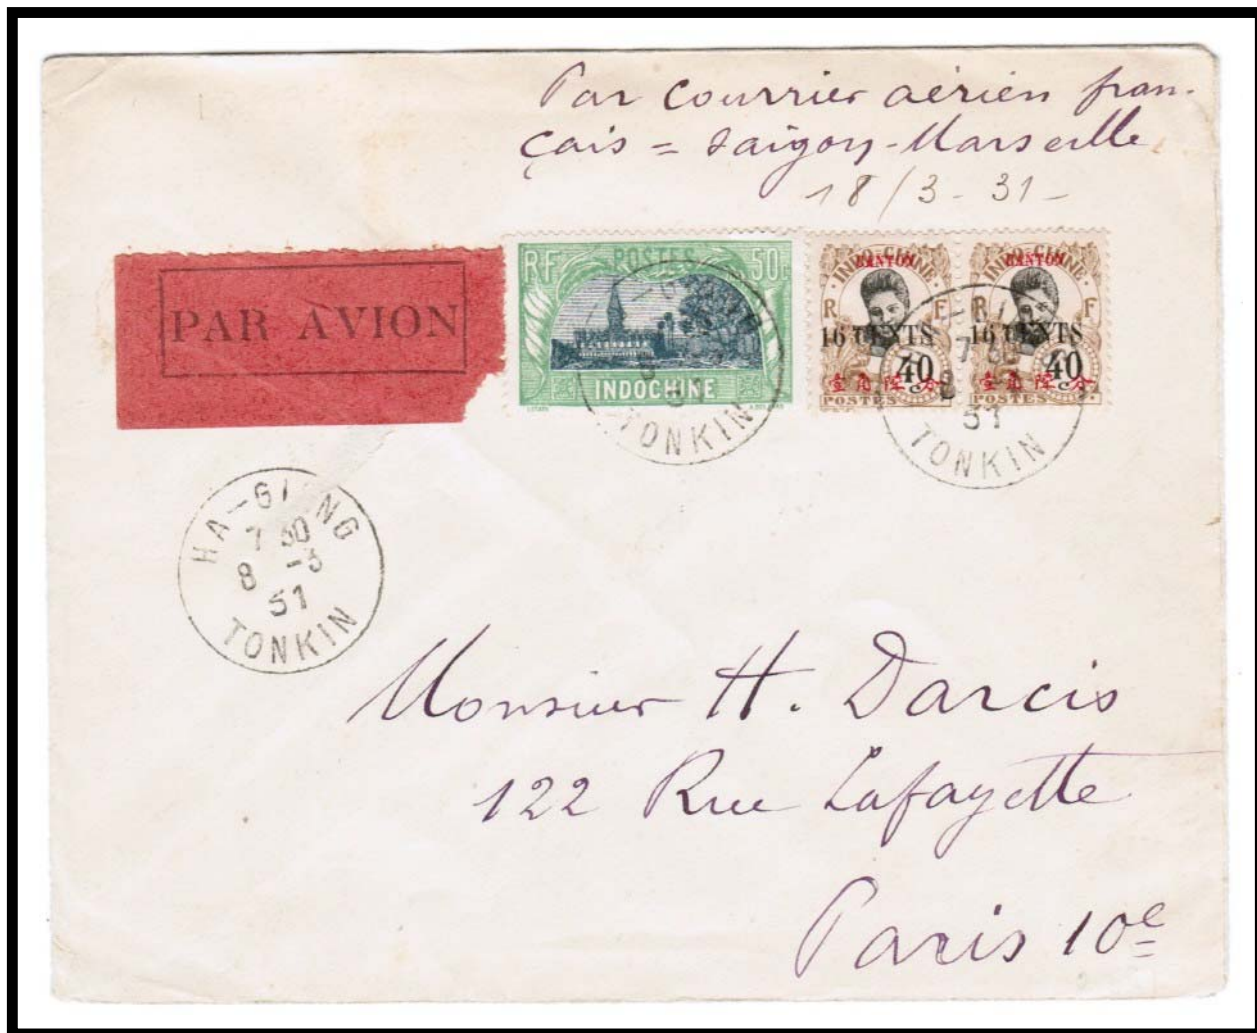 Par Courrier aérien fran-
çais = Saïgon-Marseille
18/3-31-
PAR AVION
RF POSTES 50
INDOCHINE
TONKIN
INDO-CHINE
CANTON
R F
16 CENTS
40
壹角陸分
POSTES
INDO-CHINE
CANTON
R F
16 CENTS
40
壹角陸分
POSTES
7 30
31
TONKIN
HA-GIANG
7 30
8 -3
31
TONKIN
Monsieur H. Darcis
122 Rue Lafayette
Paris 10e